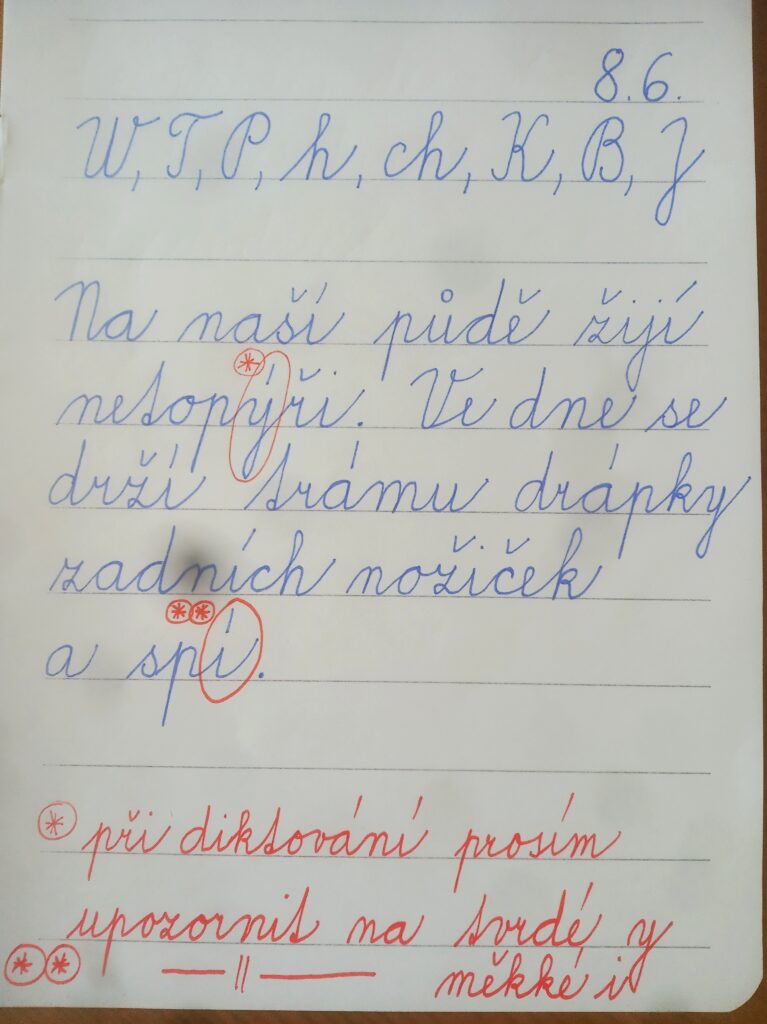 8.6.
W, T, P, h, ch, K, B, J
Na naší půdě žijí
netopýři. Ve dne se
drží trámu drápky
zadních nožiček
a spí.
* při diktování prosím
upozornit na tvrdé y
** —— || —— měkké i